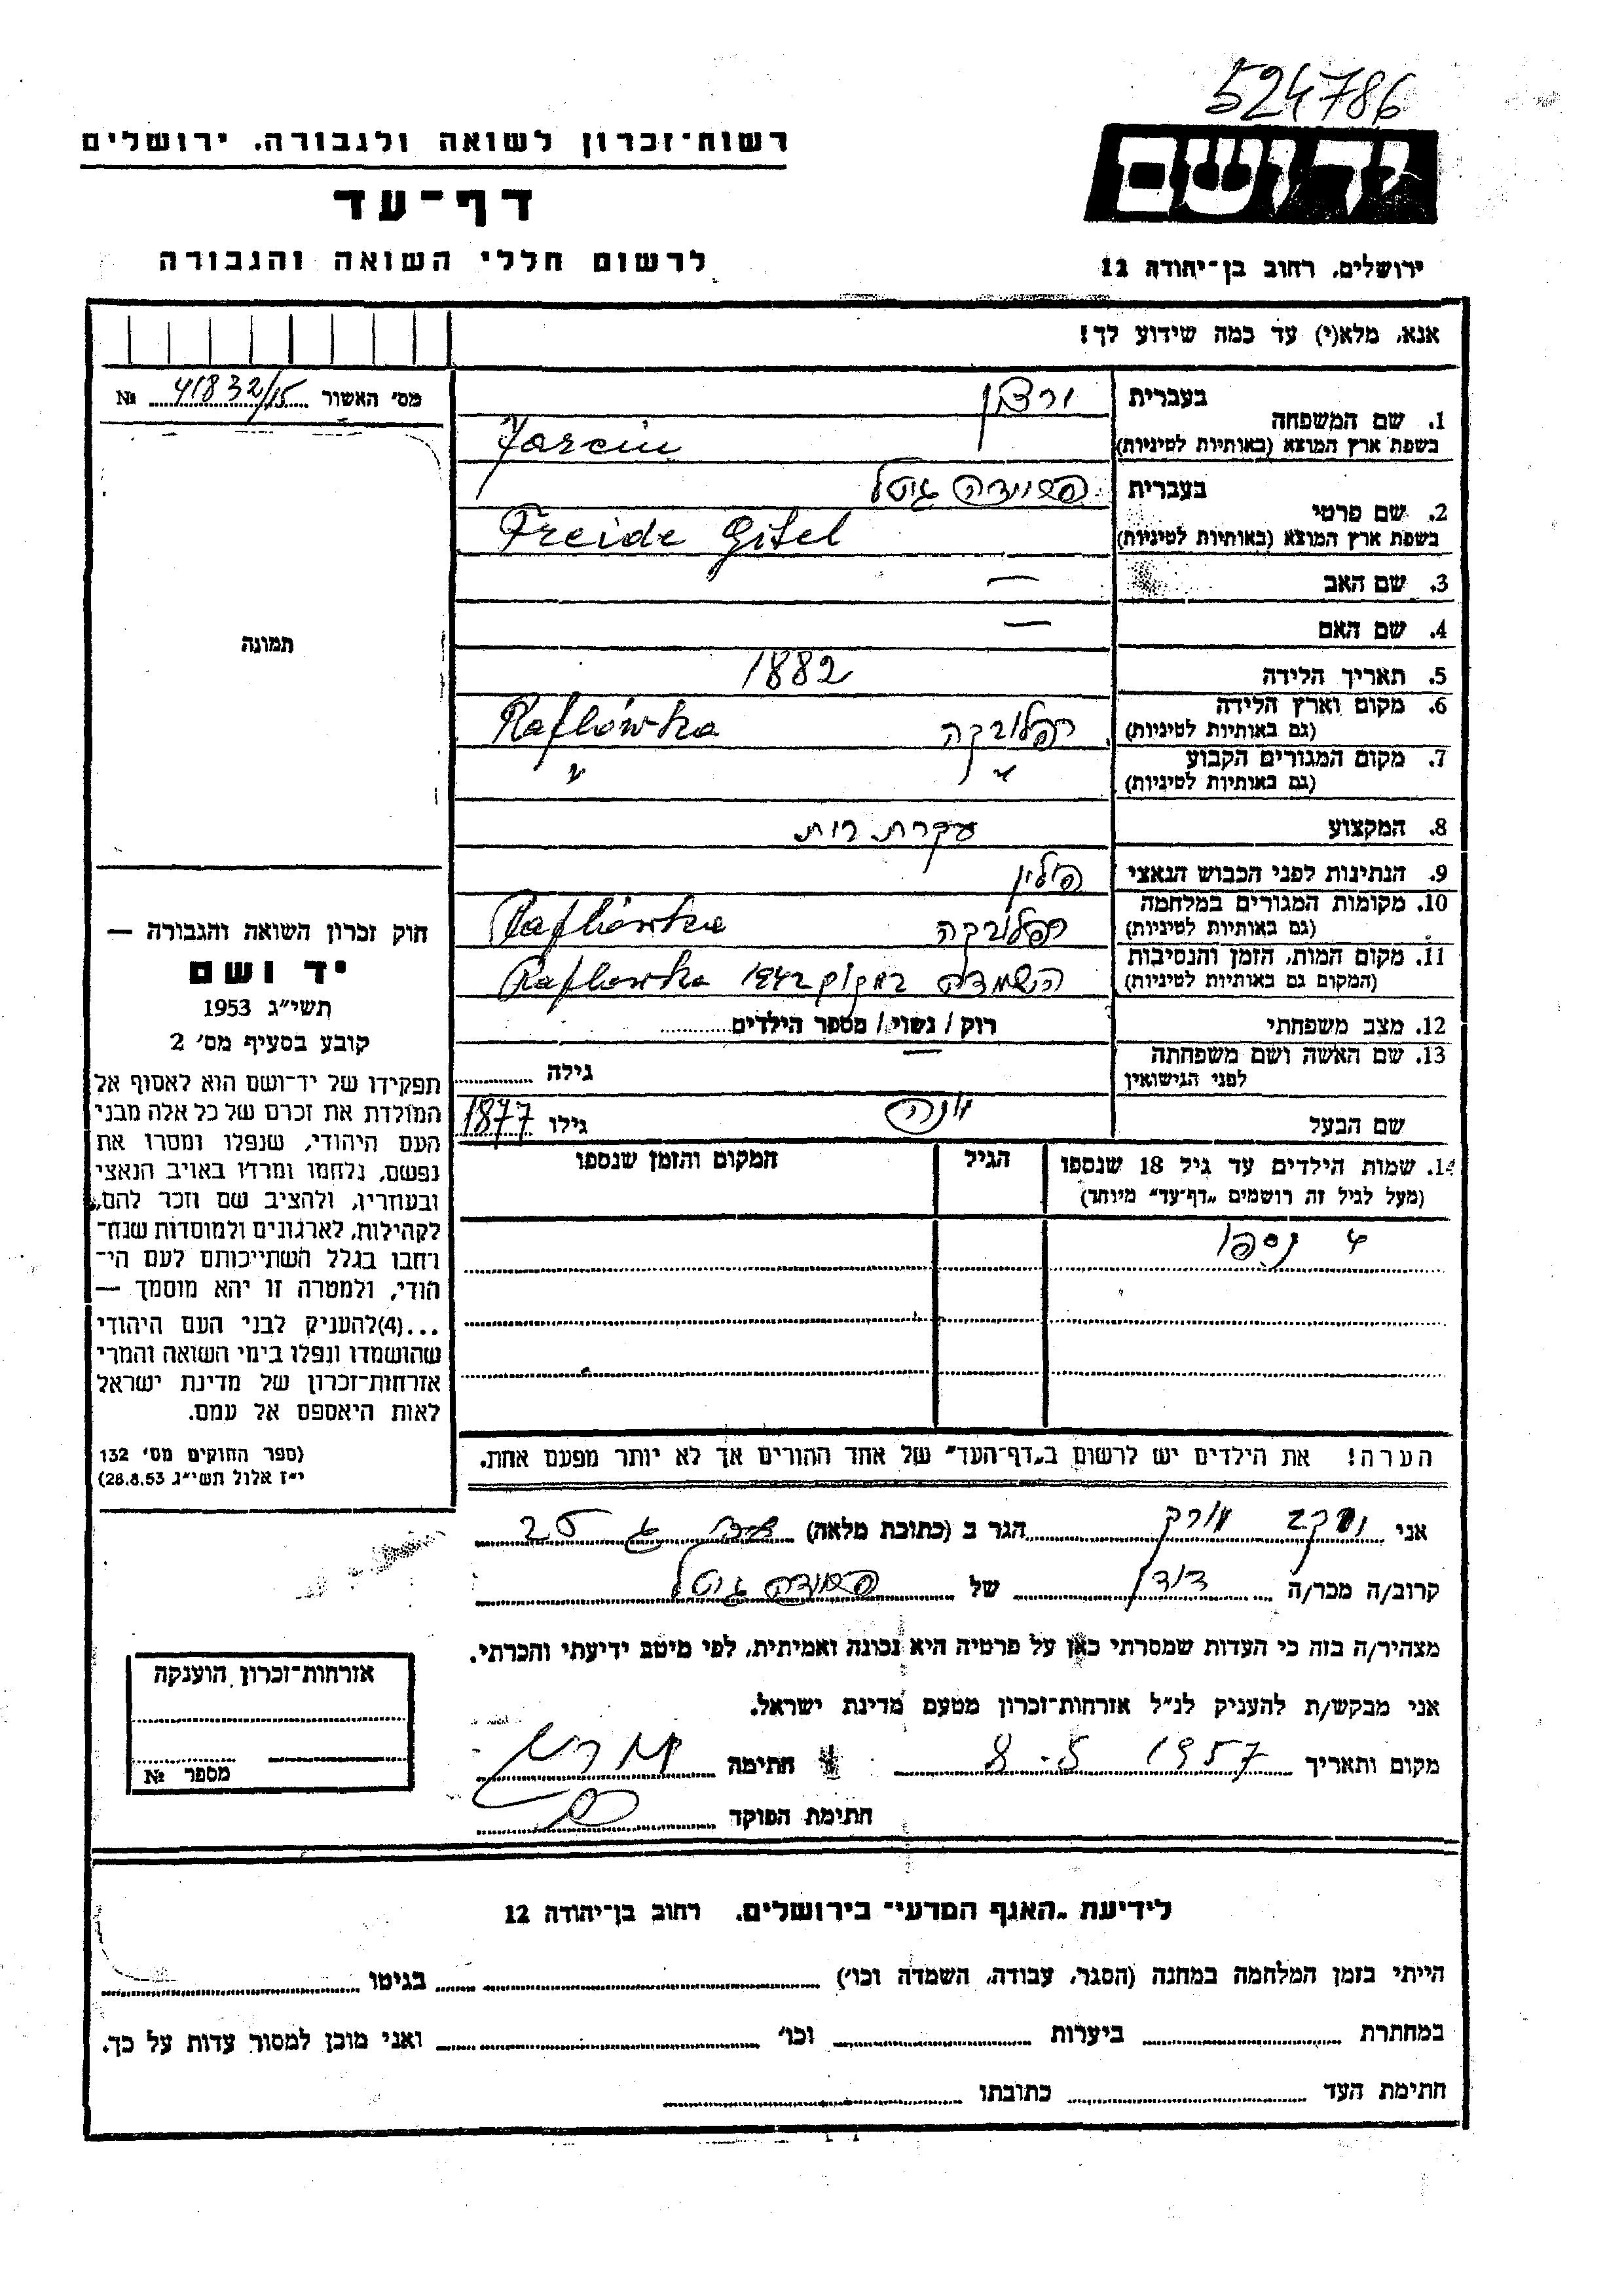 524786
יד ושם
ירושלים, רחוב בן־יהודה 12
רשות־זכרון לשואה ולגבורה, ירושלים
דף־עד
לרשום חללי השואה והגבורה
אנא, מלא(י) עד כמה שידוע לך!
מס' האשור 41832/15 №
תמונה
בעברית
1. שם המשפחה
בשפת ארץ המוצא (באותיות לטיניות)
בעברית
2. שם פרטי
בשפת ארץ המוצא (באותיות לטיניות) Freide Gitel
3. שם האב —
4. שם האם —
5. תאריך הלידה 1882
6. מקום וארץ הלידה
(גם באותיות לטיניות) רפלובקה Raflówka
7. מקום המגורים הקבוע
(גם באותיות לטיניות) " "
8. המקצוע עקרת בית
9. הנתינות לפני הכבוש הנאצי פולין
10. מקומות המגורים במלחמה
(גם באותיות לטיניות) רפלובקה Raflówka
11. מקום המות, הזמן והנסיבות
(המקום גם באותיות לטיניות) השמדה במקום 1942 Raflowka
12. מצב משפחתי רוק / נשוי / מספר הילדים
13. שם האשה ושם משפחתה —
לפני הנישואין גילה
שם הבעל גילו 1877
14. שמות הילדים עד גיל 18 שנספו הגיל המקום והזמן שנספו
(מעל לגיל זה רושמים „דף־עד" מיוחד)
4 נספו
הערה! את הילדים יש לרשום ב„דף־העד" של אחד ההורים אך לא יותר מפעם אחת.
חוק זכרון השואה והגבורה —
יד ושם
תשי"ג 1953
קובע בסעיף מס' 2
תפקידו של יד־ושם הוא לאסוף אל
המולדת את זכרם של כל אלה מבני
העם היהודי, שנפלו ומסרו את
נפשם, נלחמו ומרדו באויב הנאצי
ובעוזריו, ולהציב שם וזכר להם,
לקהילות, לארגונים ולמוסדות שנח־
רחבו בגלל השתייכותם לעם הי־
הודי, ולמטרה זו יהא מוסמך —
...(4)להעניק לבני העם היהודי
שהושמדו ונפלו בימי השואה והמרי
אזרחות־זכרון של מדינת ישראל
לאות היאספם אל עמם.
(ספר החוקים מס' 132
י"ז אלול תשי"ג 28.8.53)
אני יעקב הגר ב (כתובת מלאה)
קרוב/ה מכר/ה דודן של גיטל
מצהיר/ה בזה כי העדות שמסרתי כאן על פרטיה היא נכונה ואמיתית, לפי מיטב ידיעתי והכרתי.
אני מבקש/ת להעניק לנ"ל אזרחות־זכרון מטעם מדינת ישראל.
מקום ותאריך 8-5 1957 חתימה
חתימת הפוקד
אזרחות־זכרון הוענקה
מספר №
לידיעת „האגף המדעי" בירושלים, רחוב בן־יהודה 12
הייתי בזמן המלחמה במחנה (הסגר, עבודה, השמדה וכו') בגיטו
במחתרת ביערות וכו' ואני מוכן למסור עדות על כך.
חתימת העד כתובתו